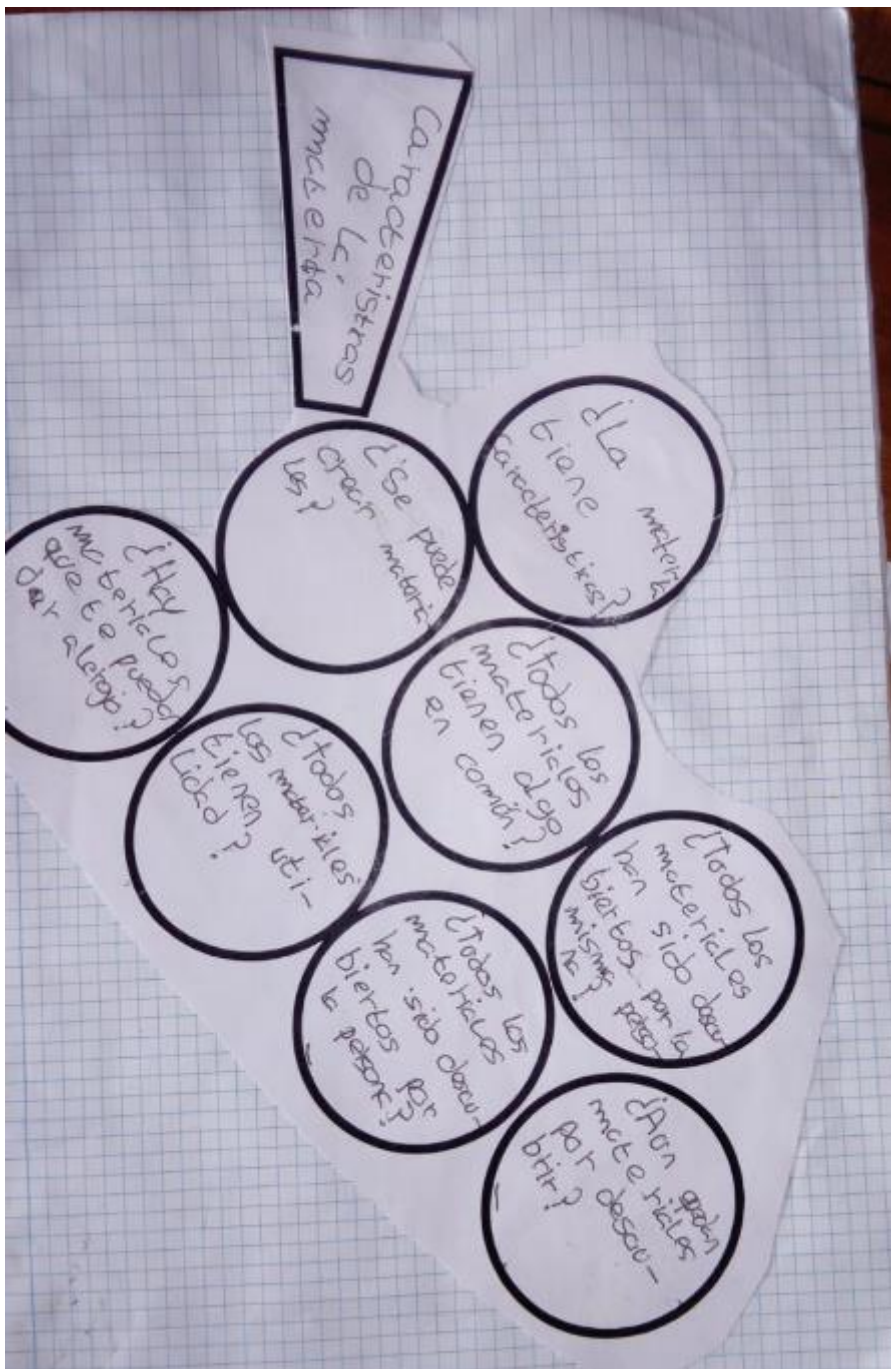 Caracteristicas
de la
materia
¿La materia
tiene
caracteristicas?
¿Se puede
crear materia-
les?
¿Hay
materiales
que te puedan
dar alergia?
¿Todos los
materiales
tienen algo
en común?
¿Todos
los materiales
tienen uti-
lidad?
¿Todos los
materiales
han sido descu-
biertos por la
misma perso-
na?
¿Todos los
materiales
han sido descu-
biertos por
la persona?
¿Aun quedan
materiales
por descu-
brir?